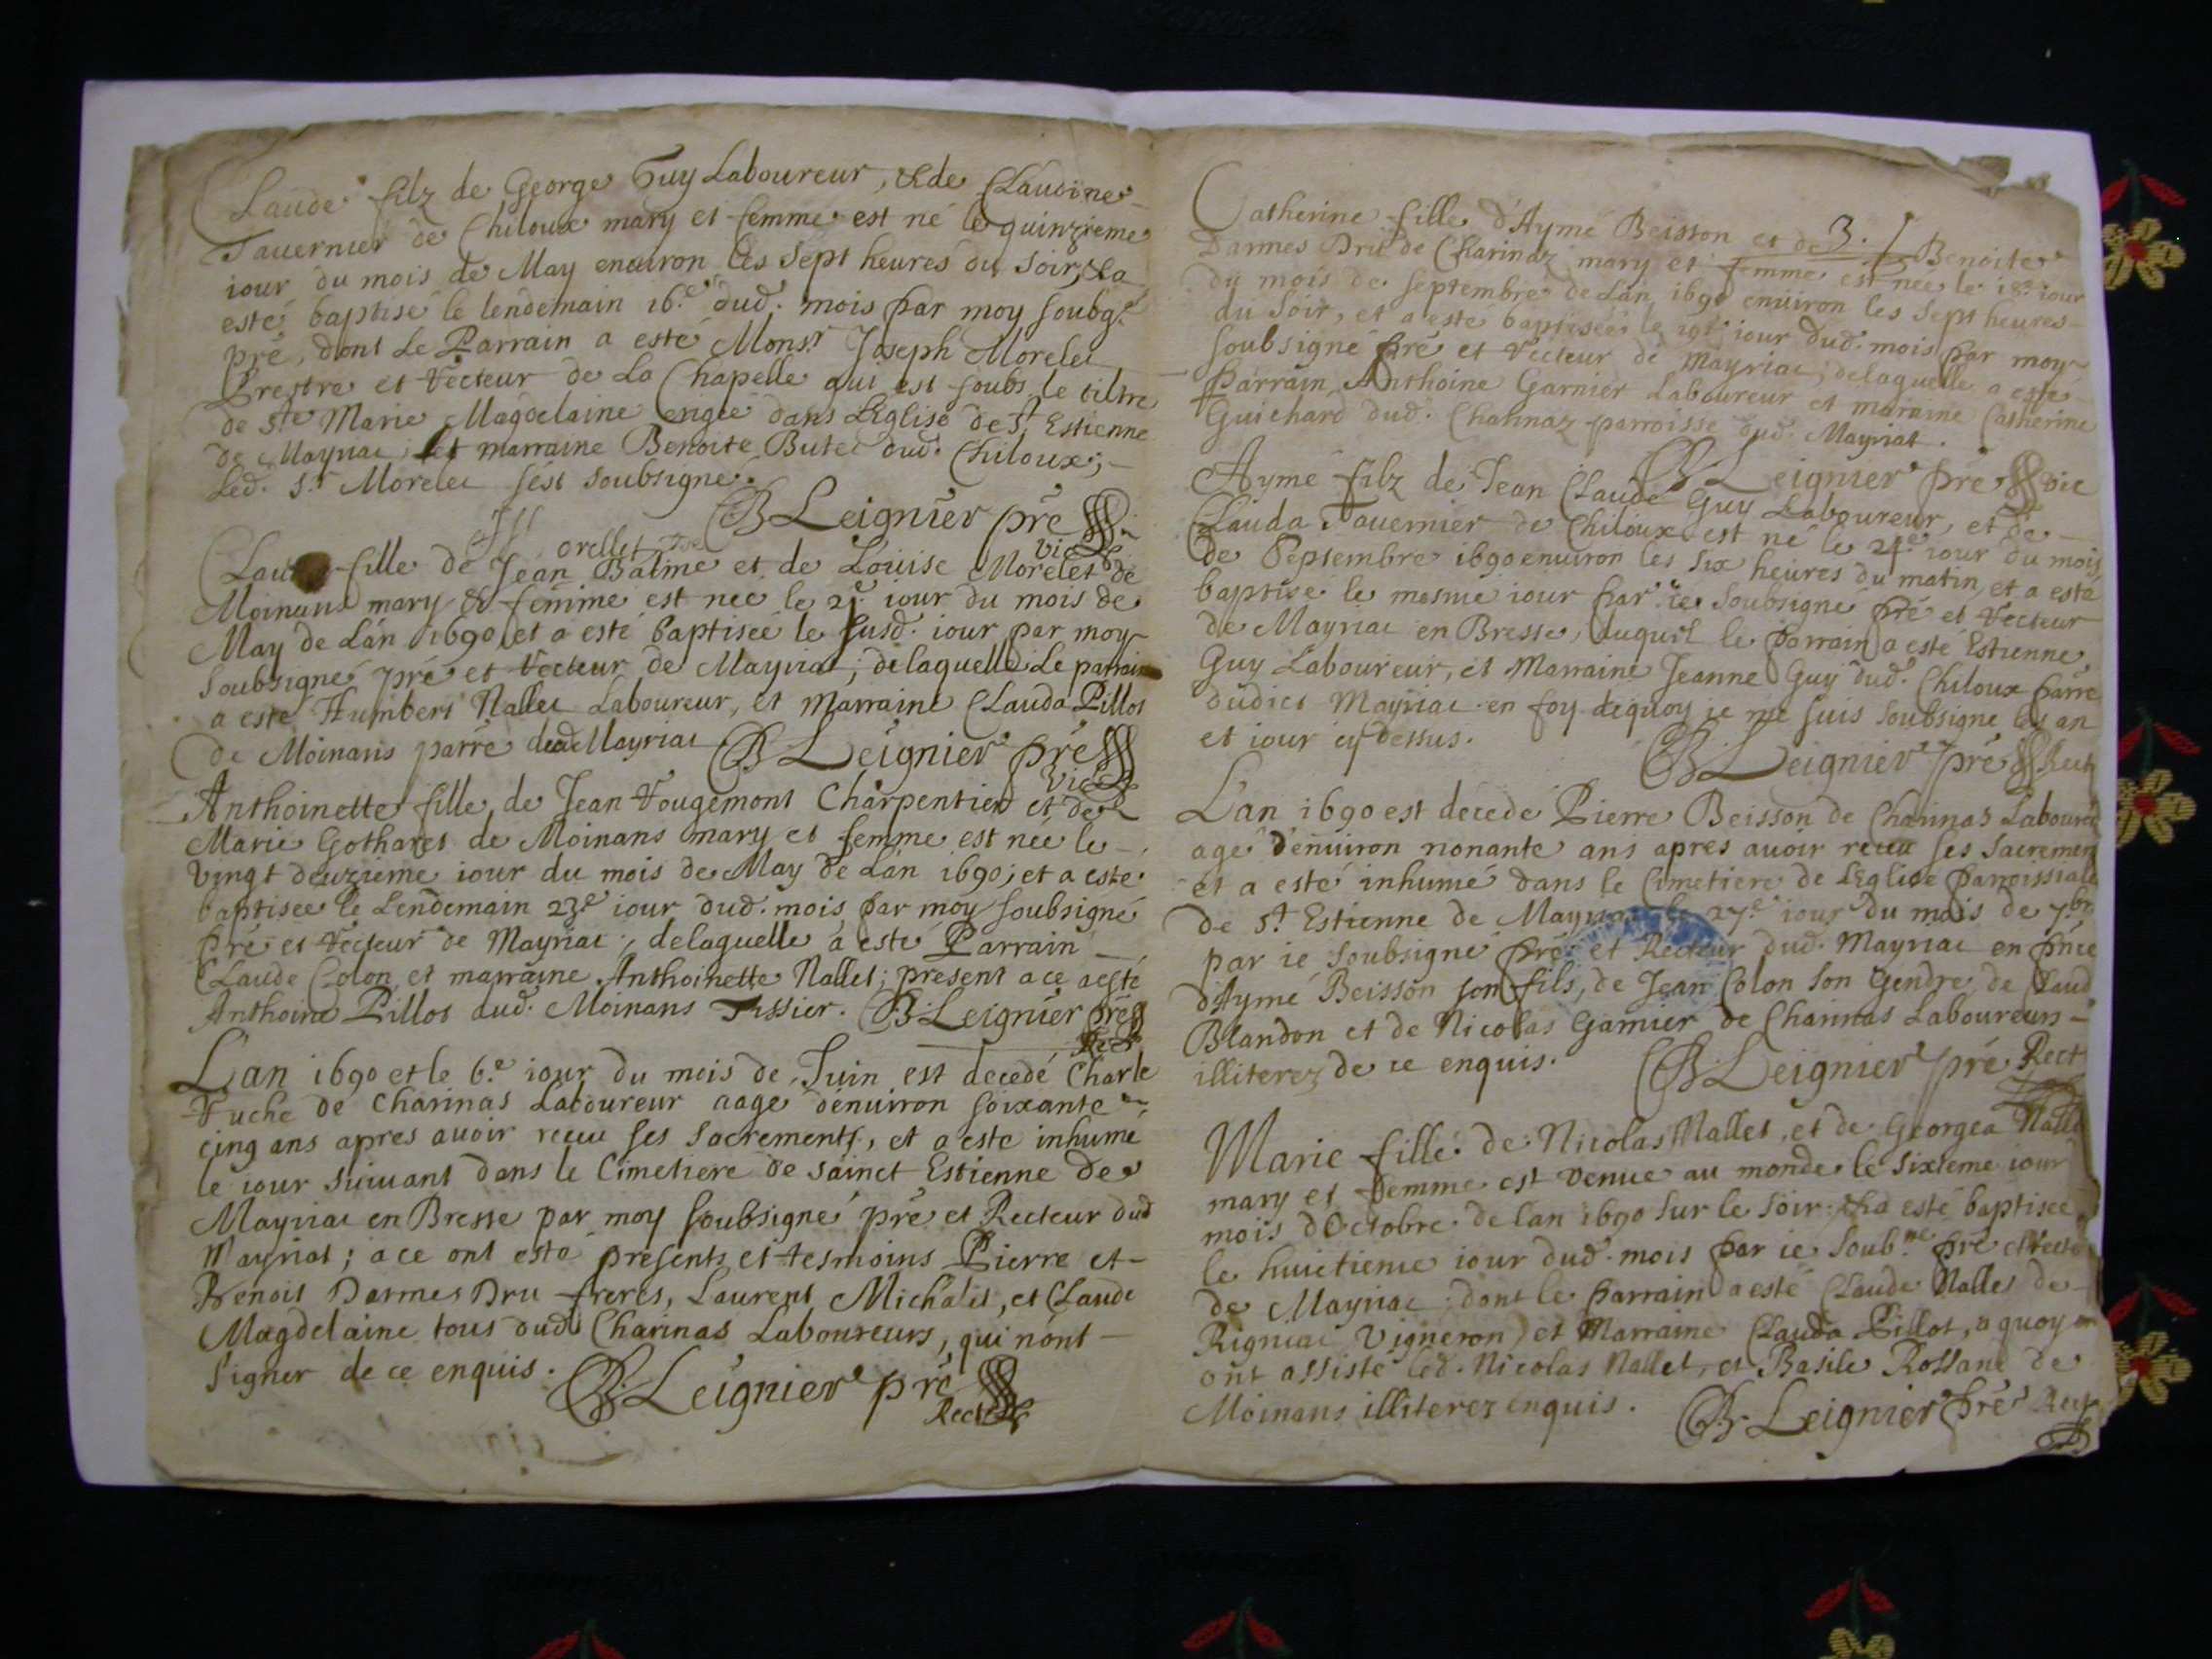 Claude filz de George Guy Laboureur, & de Claudine
Tavernier de Chiloux mary et femme est né le quinzieme
iour du mois de May enuiron les sept heures du soir, & a
esté baptisé le lendemain 16.e dud. mois par moy soubg.é
pré, dont Le Parrain a esté Mons.r Joseph Morelet
Prestre et Recteur de La Chapelle qui est soubs le tiltre
de S.te Marie Magdelaine erigée dans L'Eglise de S.t Estienne
de Mayriac, et marraine Benoite Butet dud. Chiloux;
Led. S.r Morelet s'est soubsigné.
B Leignier pré
Vic
Morellet
Claud fille de Jean Balme et de Louise Morelet de
Moinans mary & femme est née le 21.e iour du mois de
May de L'an 1690 et a esté baptisée le susd. iour par moy
soubsigné pré et Recteur de Mayriat; delaquelle Le parrain
a esté Humbert Nallet Laboureur, et Marraine Clauda Pillot
de Moinans parré dud Mayriat B Leignier pré
Vic
Anthoinette fille de Jean Vougemont Charpentier et de
Marie Gotharet de Moinans mary et femme est née le
Vingt deuzieme iour du mois de May de L'an 1690; et a esté
baptisée le Lendemain 23.e iour dud. mois par moy soubsigné
pré et Recteur de Mayriac, delaquelle a esté Parrain
Claude Colon, et marraine Anthoinette Nallet; present a ce a esté
Anthoine Pillot dud. Moinans Tissier. B. Leignier pré
Rect
L'an 1690 et le 6.e iour du mois de Juin est decedé Charle
Vuche de Charinas Laboureur aagé d'enuiron soixante
cinq ans apres auoir receu ses sacrements, et a esté inhumé
le iour suiuant dans le Cimetiere de sainct Estienne de
Mayriac en Bresse par moy soubsigné pré et Recteur dud
Mayriat; a ce ont esté presents et tesmoins Pierre et
Benoit Darmes Dru freres, Laurent Michalet, et Claude
Magdelaine tous dud Charinas Laboureurs, qui n'ont
signer de ce enquis. B. Leignier pré
Rect
3.
Catherine fille d'Aymé Beisson et de Benoite
Darmes Dru de Charinaz mary et femme est née le 18.e iour
du mois de septembre de L'an 1690 enuiron les sept heures
du soir, et a esté baptisée le 19.e iour dud. mois par moy
soubsigné pré et Recteur de Mayriac, delaquelle a esté
Parrain Anthoine Garnier Laboureur et maraine Catherine
Guichard dud. Charinaz parroisse dud. Mayriat.
B. Leignier pré Vic
Aymé filz de Jean Claude Guy Laboureur, et de
Clauda Tavernier de Chiloux est né le 21.e iour du mois
de Septembre 1690 enuiron les six heures du matin, et a esté
baptisé le mesme iour par ie soubsigné pré et Recteur
de Mayriac en Bresse, duquel le parrain a esté Estienne
Guy Laboureur, et Marraine Jeanne Guy dud. Chiloux parré
dudict Mayriac en foy dequoy ie me suis soubsigné les an
et iour cy dessus.
B. Leignier pré Rect
L'an 1690 est decedé Pierre Beisson de Charinas Laboureu
agé d'enuiron nonante ans apres auoir receu ses sacremen
et a esté inhumé dans le Cimetiere de L'Eglise Parroissiale
de S.t Estienne de Mayriac le 27.e iour du mois de 7.bre
par ie soubsigné pré et Recteur dud. Mayriac en pnce
d'Aymé Beisson son fils, de Jean Colon son Gendre, de Claud
Blandon et de Nicolas Garnier de Charinas Laboureurs
illiterez de ce enquis. B. Leignier pré Rect
Marie fille de Nicolas Nallet, et de Georgea Nalle
mary et femme est venue au monde le sixieme iour
mois d'Octobre de l'an 1690 sur le soir & a esté baptisée
le huictieme iour dud. mois par ie soub.né pré et Recte
de Mayriac; dont le parrain a esté Claude Nallet de
Rigniac Vigneron) et Marraine Clauda Pillot, a quoy
ont assisté led. Nicolas Nallet, et Basile Rossand de
Moinans illiterez enquis. B. Leignier pré Rect